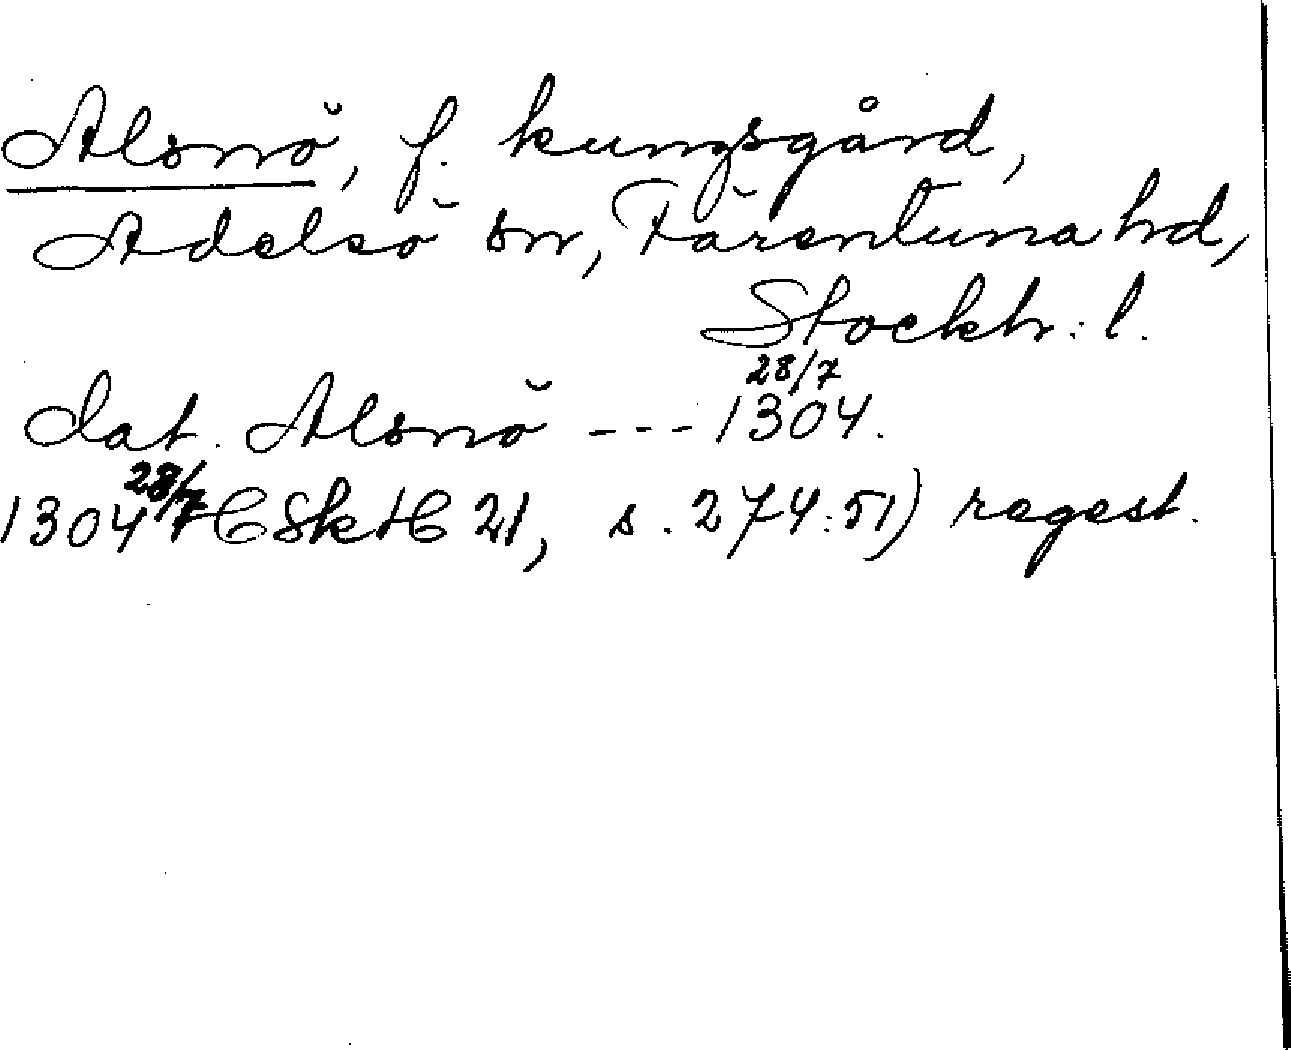 Alsnö, f. kungsgård,
Adelsö sn, Färentuna hd,
Stockh: l.
28/7
dat. Alsnö --- 1304.
1304 28/7 (SkHC 21, s. 274:51) regest.